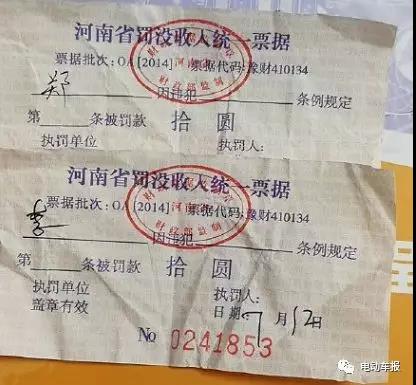 河南省罚没收入统一票据
票据批次：OA [2014] 票据代码：豫财410134
郑 因违犯 条例规定
第 条被罚款 拾圆
执罚单位 执罚人：
河南省罚没收入统一票据
票据批次：OA [2014] 票据代码：豫财410134
李 因违犯 条例规定
第 条被罚款 拾圆
执罚单位 执罚人：
盖章有效 日期 7月12日
No 0241853
河南省
财政部监制
河南省
财政部监制
电动车报